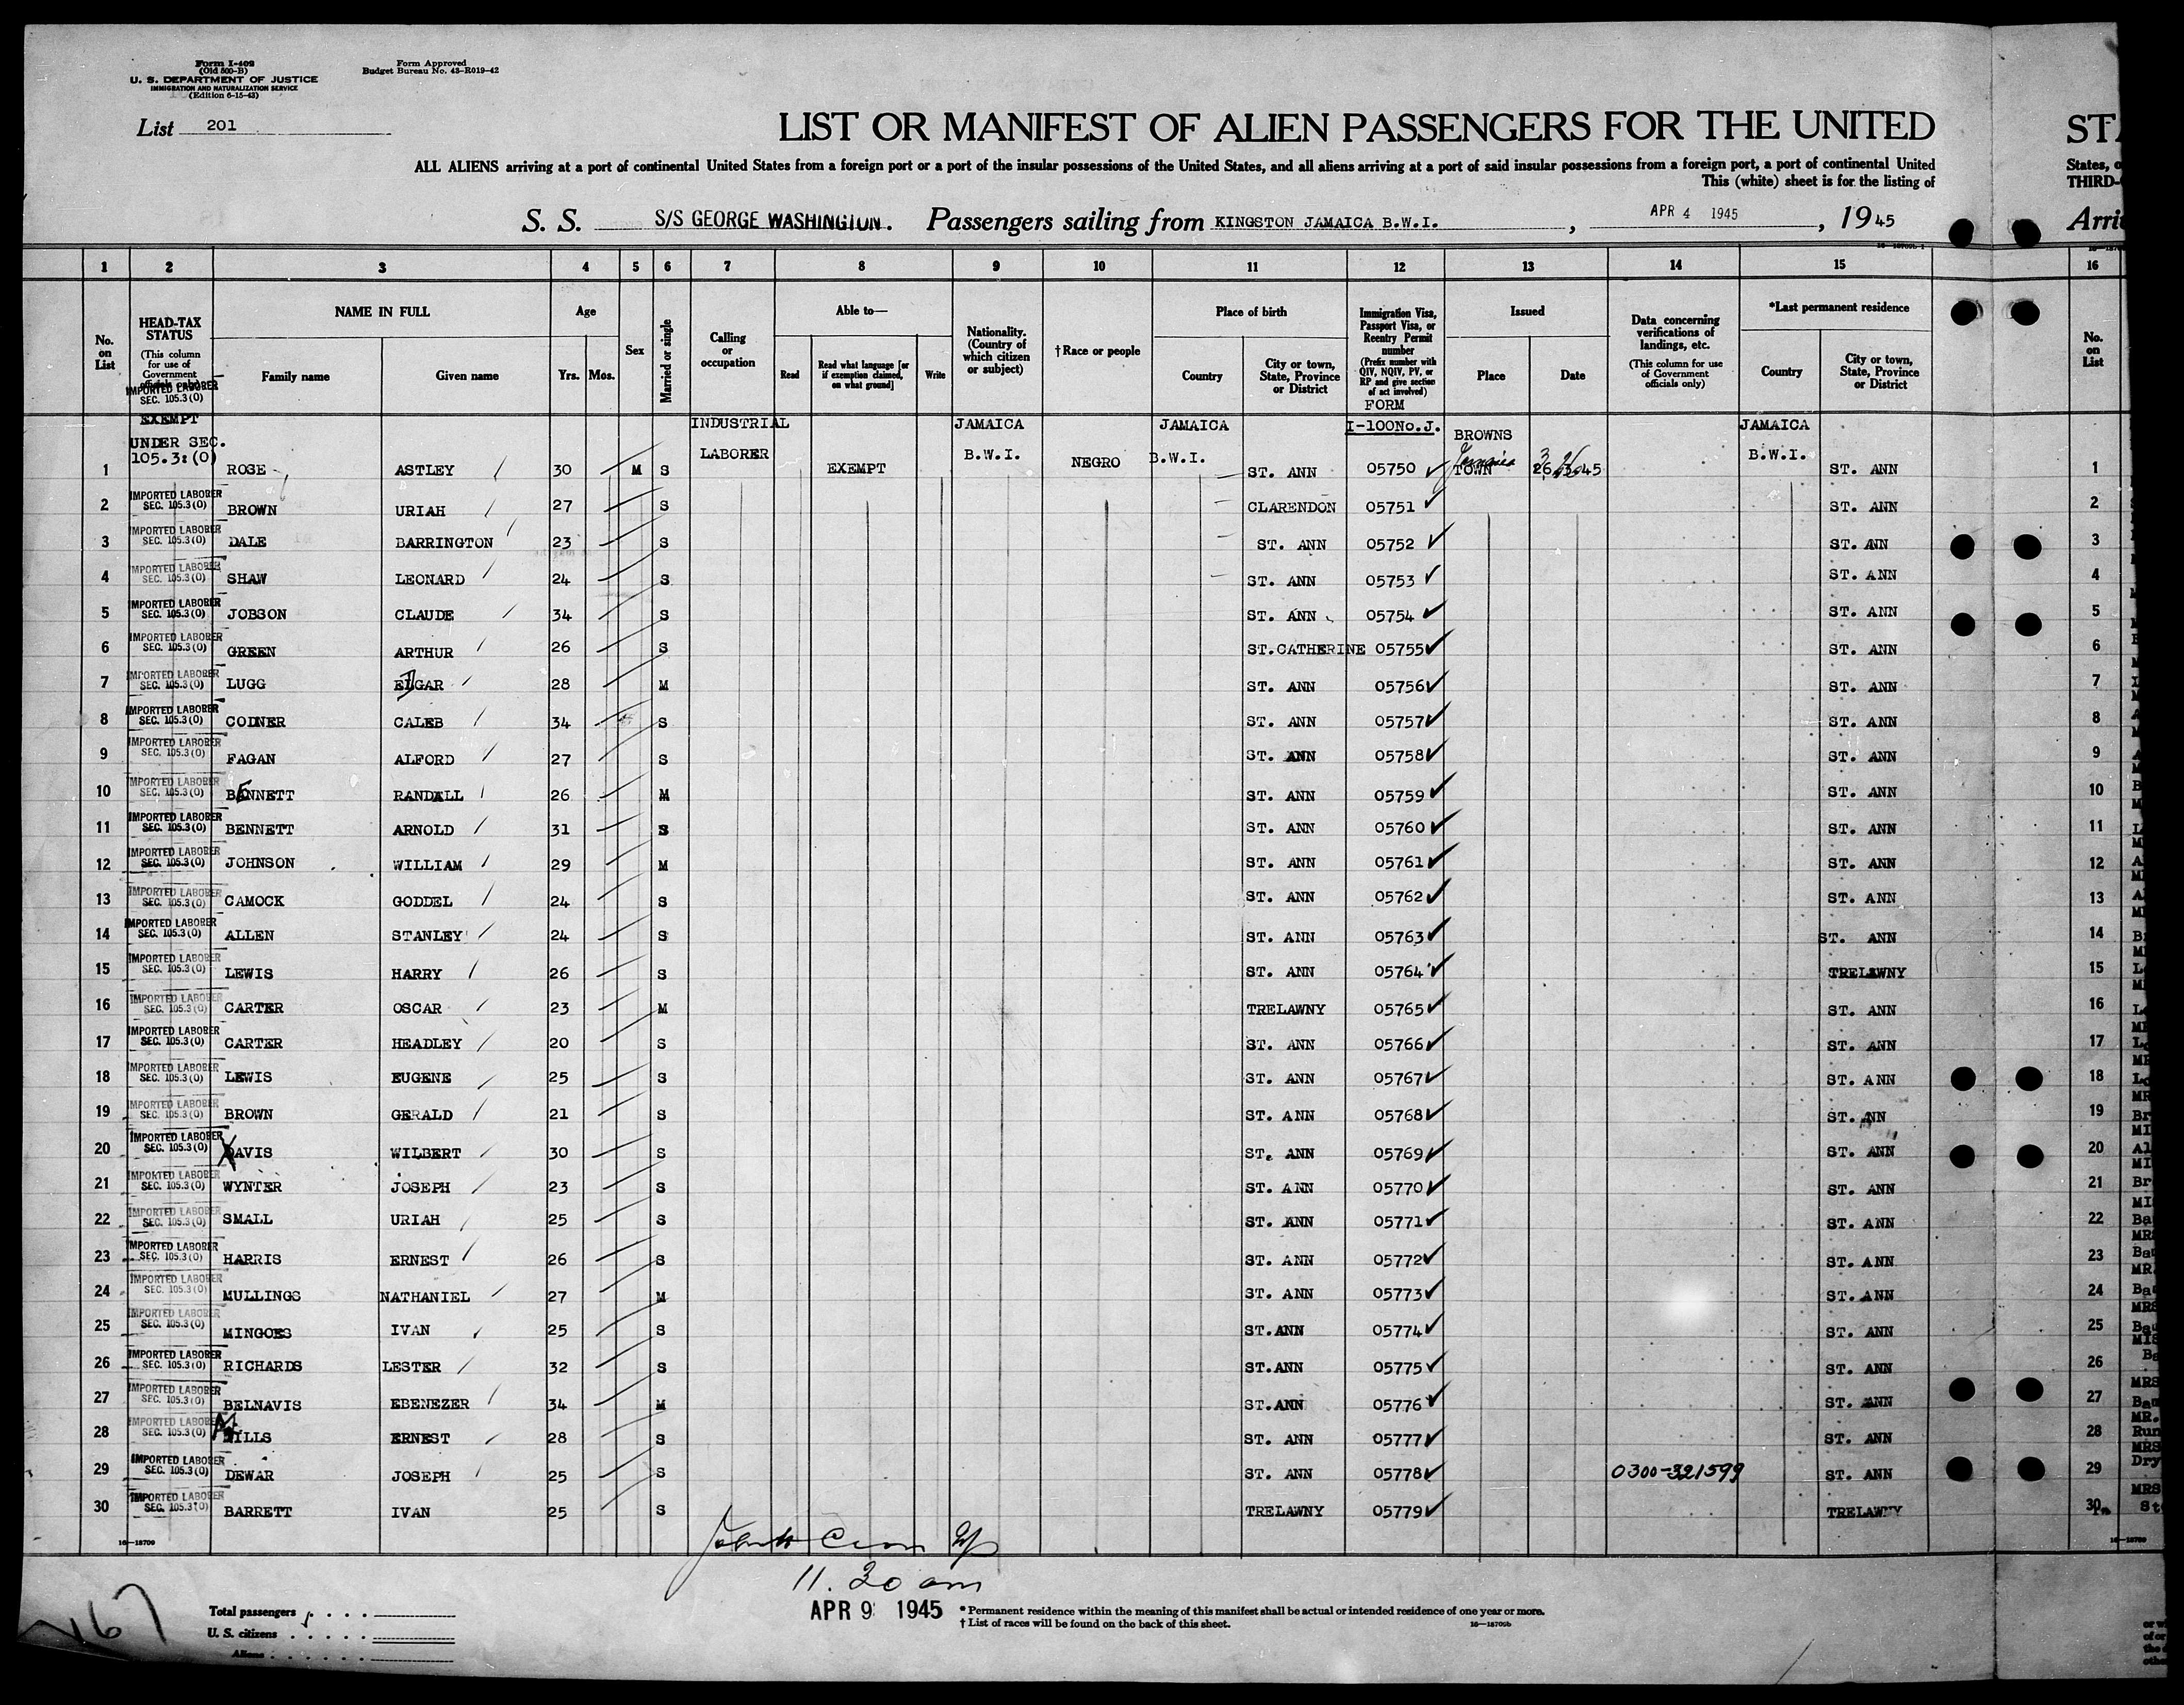 Form I-402
(Old 500-B)
U. S. DEPARTMENT OF JUSTICE
IMMIGRATION AND NATURALIZATION SERVICE
(Edition 6-15-43)
Form Approved
Budget Bureau No. 43-R019-42
List 201
LIST OR MANIFEST OF ALIEN PASSENGERS FOR THE UNITED
ALL ALIENS arriving at a port of continental United States from a foreign port or a port of the insular possessions of the United States, and all aliens arriving at a port of said insular possessions from a foreign port, a port of continental United
This (white) sheet is for the listing of
S. S. S/S GEORGE WASHINGTON. Passengers sailing from KINGSTON JAMAICA B.W.I., APR 4 1945, 1945
States, o
THIRD-
1 2 3 4 5 6 7 8 9 10 11 12 13 14 15 16
No. on List
HEAD-TAX STATUS
(This column for use of Government officials only)
NAME IN FULL
Family name Given name
Age
Yrs. Mos.
Sex
Married or single
Calling or occupation
Able to—
Read Read what language [or if exemption claimed, on what ground] Write
Nationality. (Country of which citizen or subject)
†Race or people
Place of birth
Country City or town, State, Province or District
Immigration Visa, Passport Visa, or Reentry Permit number
(Prefix number with QIV, NQIV, PV, or RP and give section of act involved)
Issued
Place Date
Data concerning verifications of landings, etc.
(This column for use of Government officials only)
*Last permanent residence
Country City or town, State, Province or District
No. on List
IMPORTED LABORER
SEC. 105.3(O)
EXEMPT
UNDER SEC.
105.3:(O)
INDUSTRIAL
LABORER
JAMAICA
B.W.I.
JAMAICA
B.W.I.
FORM
I-100No.J.
BROWNS
TOWN
Jamaica
JAMAICA
B.W.I.
1 ROSE ASTLEY 30 M S EXEMPT NEGRO ST. ANN 05750 ST. ANN 1
2 IMPORTED LABORER SEC. 105.3(O) BROWN URIAH 27 S CLARENDON 05751 ST. ANN 2
3 IMPORTED LABORER SEC. 105.3(O) DALE BARRINGTON 23 S ST. ANN 05752 ST. ANN 3
4 IMPORTED LABORER SEC. 105.3(O) SHAW LEONARD 24 S ST. ANN 05753 ST. ANN 4
5 IMPORTED LABORER SEC. 105.3(O) JOBSON CLAUDE 34 S ST. ANN 05754 ST. ANN 5
6 IMPORTED LABORER SEC. 105.3(O) GREEN ARTHUR 26 S ST.CATHERINE 05755 ST. ANN 6
7 IMPORTED LABORER SEC. 105.3(O) LUGG EDGAR 28 M ST. ANN 05756 ST. ANN 7
8 IMPORTED LABORER SEC. 105.3(O) CODNER CALEB 34 S ST. ANN 05757 ST. ANN 8
9 IMPORTED LABORER SEC. 105.3(O) FAGAN ALFORD 27 S ST. ANN 05758 ST. ANN 9
10 IMPORTED LABORER SEC. 105.3(O) BENNETT RANDALL 26 M ST. ANN 05759 ST. ANN 10
11 IMPORTED LABORER SEC. 105.3(O) BENNETT ARNOLD 31 S ST. ANN 05760 ST. ANN 11
12 IMPORTED LABORER SEC. 105.3(O) JOHNSON WILLIAM 29 M ST. ANN 05761 ST. ANN 12
13 IMPORTED LABORER SEC. 105.3(O) CAMOCK GODDEL 24 S ST. ANN 05762 ST. ANN 13
14 IMPORTED LABORER SEC. 105.3(O) ALLEN STANLEY 24 S ST. ANN 05763 ST. ANN 14
15 IMPORTED LABORER SEC. 105.3(O) LEWIS HARRY 26 S ST. ANN 05764 TRELAWNY 15
16 IMPORTED LABORER SEC. 105.3(O) CARTER OSCAR 23 M TRELAWNY 05765 ST. ANN 16
17 IMPORTED LABORER SEC. 105.3(O) CARTER HEADLEY 20 S ST. ANN 05766 ST. ANN 17
18 IMPORTED LABORER SEC. 105.3(O) LEWIS EUGENE 25 S ST. ANN 05767 ST. ANN 18
19 IMPORTED LABORER SEC. 105.3(O) BROWN GERALD 21 S ST. ANN 05768 ST. ANN 19
20 IMPORTED LABORER SEC. 105.3(O) DAVIS WILBERT 30 S ST. ANN 05769 ST. ANN 20
21 IMPORTED LABORER SEC. 105.3(O) WYNTER JOSEPH 23 S ST. ANN 05770 ST. ANN 21
22 IMPORTED LABORER SEC. 105.3(O) SMALL URIAH 25 S ST. ANN 05771 ST. ANN 22
23 IMPORTED LABORER SEC. 105.3(O) HARRIS ERNEST 26 S ST. ANN 05772 ST. ANN 23
24 IMPORTED LABORER SEC. 105.3(O) MULLINGS NATHANIEL 27 M ST. ANN 05773 ST. ANN 24
25 IMPORTED LABORER SEC. 105.3(O) MINGOES IVAN 25 S ST.ANN 05774 ST. ANN 25
26 IMPORTED LABORER SEC. 105.3(O) RICHARDS LESTER 32 S ST.ANN 05775 ST. ANN 26
27 IMPORTED LABORER SEC. 105.3(O) BELNAVIS EBENEZER 34 M ST.ANN 05776 ST. ANN 27
28 IMPORTED LABORER SEC. 105.3(O) MILLS ERNEST 28 S ST. ANN 05777 ST. ANN 28
29 IMPORTED LABORER SEC. 105.3(O) DEWAR JOSEPH 25 S ST. ANN 05778 0300-321599 ST. ANN 29
30 IMPORTED LABORER SEC. 105.3(O) BARRETT IVAN 25 S TRELAWNY 05779 TRELAWNY 30
16—18709
11. 30 am
APR 9 1945
167
Total passengers
U. S. citizens
Aliens
* Permanent residence within the meaning of this manifest shall be actual or intended residence of one year or more.
† List of races will be found on the back of this sheet.
16—18709b